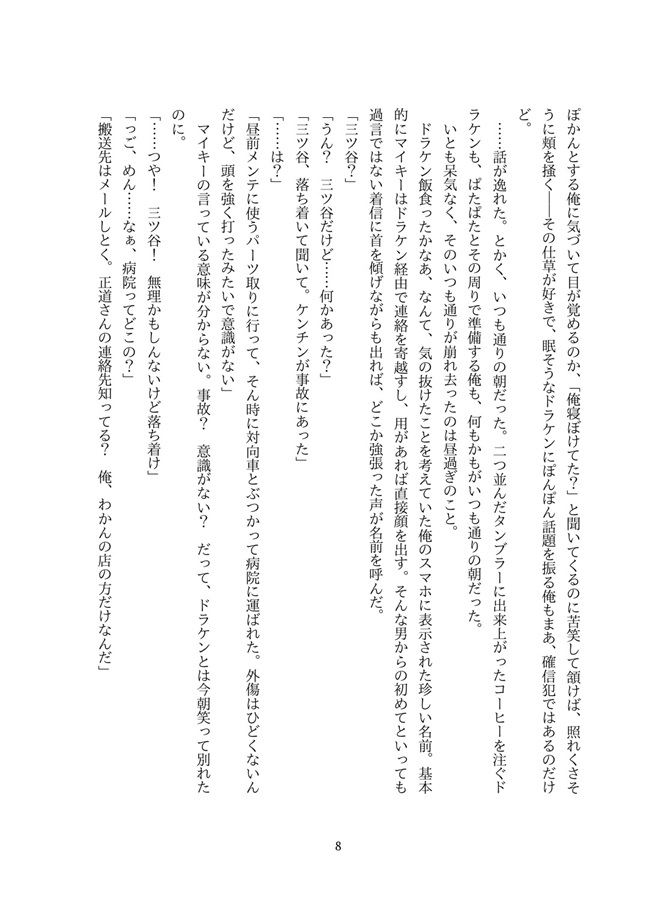 ぽかんとする俺に気づいて目が覚めるのか、「俺寝ぼけてた？」と聞いてくるのに苦笑して頷けば、照れくさそ
うに頬を掻く――その仕草が好きで、眠そうなドラケンにぽんぽん話題を振る俺もまあ、確信犯ではあるのだけ
ど。
　……話が逸れた。とかく、いつも通りの朝だった。二つ並んだタンブラーに出来上がったコーヒーを注ぐド
ラケンも、ぱたぱたとその周りで準備する俺も、何もかもがいつも通りの朝だった。
　いとも呆気なく、そのいつも通りが崩れ去ったのは昼過ぎのこと。
　ドラケン飯食ったかなあ、なんて、気の抜けたことを考えていた俺のスマホに表示された珍しい名前。基本
的にマイキーはドラケン経由で連絡を寄越すし、用があれば直接顔を出す。そんな男からの初めてといっても
過言ではない着信に首を傾げながらも出れば、どこか強張った声が名前を呼んだ。
「三ツ谷？」
「うん？　三ツ谷だけど……何かあった？」
「三ツ谷、落ち着いて聞いて。ケンチンが事故にあった」
「……は？」
「昼前メンテに使うパーツ取りに行って、そん時に対向車とぶつかって病院に運ばれた。外傷はひどくないん
だけど、頭を強く打ったみたいで意識がない」
　マイキーの言っている意味が分からない。事故？　意識がない？　だって、ドラケンとは今朝笑って別れた
のに。
「……つや！　三ツ谷！　無理かもしんないけど落ち着け」
「っご、めん……なぁ、病院ってどこの？」
「搬送先はメールしとく。正道さんの連絡先知ってる？　俺、わかんの店の方だけなんだ」
8